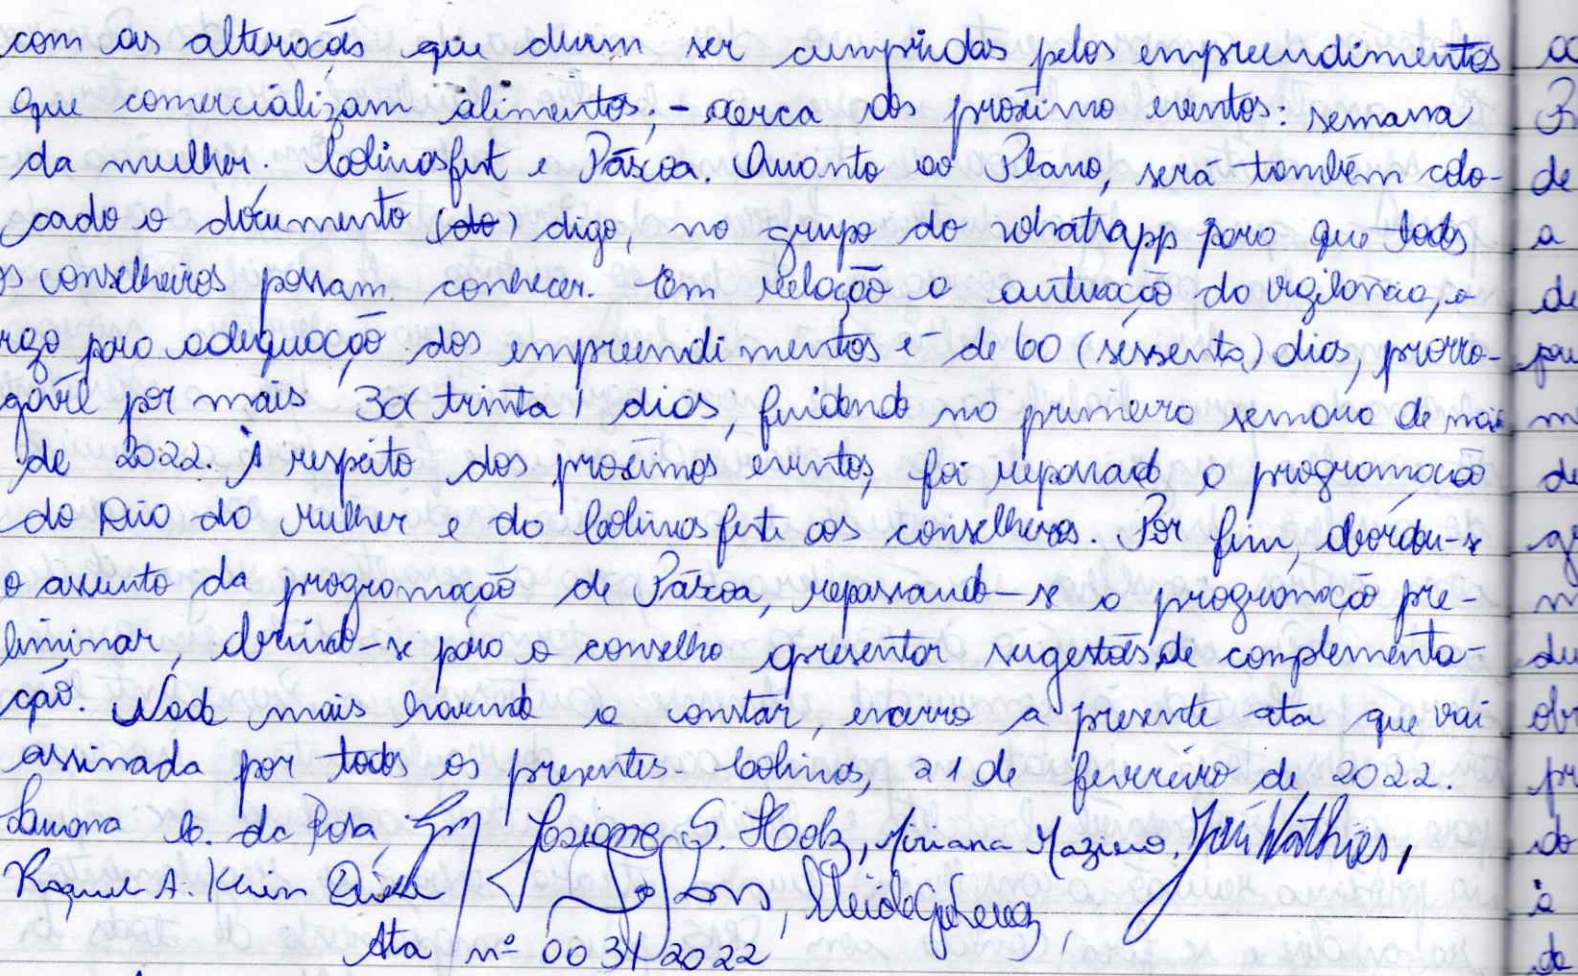 com as alterações que devem ser cumpridas pelos empreendimentos
que comercializam alimentos; - acerca dos próximo eventos: semana
da mulher. Colinasfest e Páscoa. Quanto ao Plano, será também colo-
cado o documento (do) digo, no grupo do whatsapp para que todos
os conselheiros possam conhecer. Em relação a autuação da vigilância, o
razo para adequação dos empreendimentos é de 60 (sessenta) dias, prorro-
gável por mais 30 (trinta) dias, findando na primeira semana de maio
de 2022. A respeito dos próximos eventos, foi repassado a programação
do Dia da Mulher e do Colinasfest aos conselheiros. Por fim, abordou-se
o assunto da programação de Páscoa, repassando-se a programação pre-
liminar, abrindo-se para o conselho apresentar sugestões de complementa-
ção. Nada mais havendo a constar, encerro a presente ata que vai
assinada por todos os presentes. Colinas, 21 de fevereiro de 2022.
da Rosa, S. Holz, Miriana Maziero,
Raquel A. Klein
Ata nº 003/2022